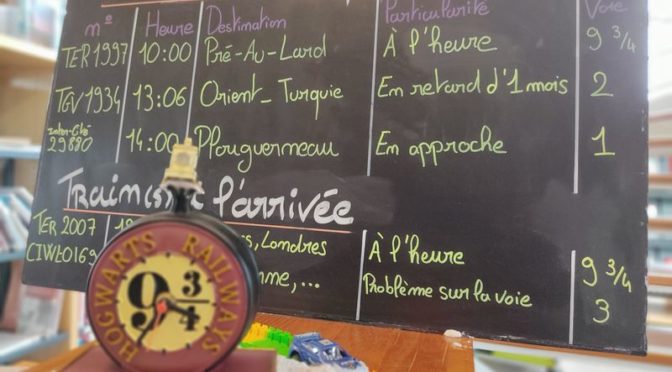 n° Heure Destination Particularité Voie
TER 1997 10:00 Pré-Au-Lard À l'heure 9 3/4
TGV 1934 13:06 Orient-Turquie En retard d'1 mois 2
Inter-Cité
29880 14:00 Plouguerneau En approche 1
Train(s) à l'arrivée
TER 2007 Londres À l'heure 9 3/4
CIWL0169 ,... Problème sur la voie 3
HOGWARTS RAILWAYS
9 3/4